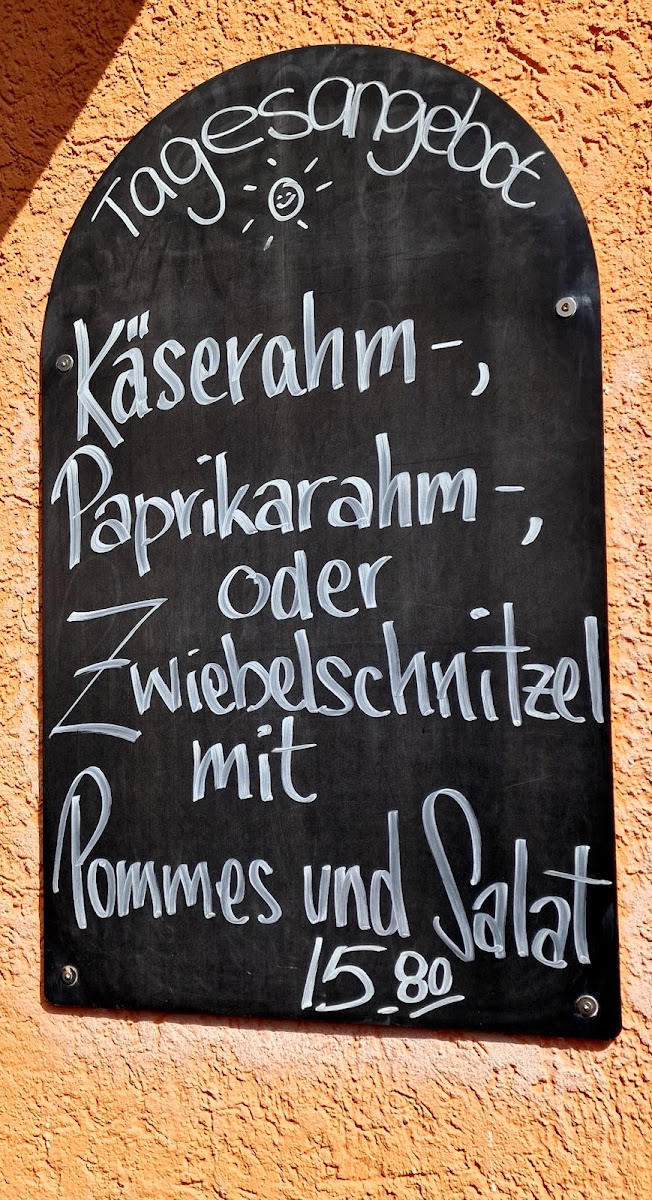 Tagesangebot
Käserahm-,
Paprikarahm-,
oder
Zwiebelschnitzel
mit
Pommes und Salat
15.80